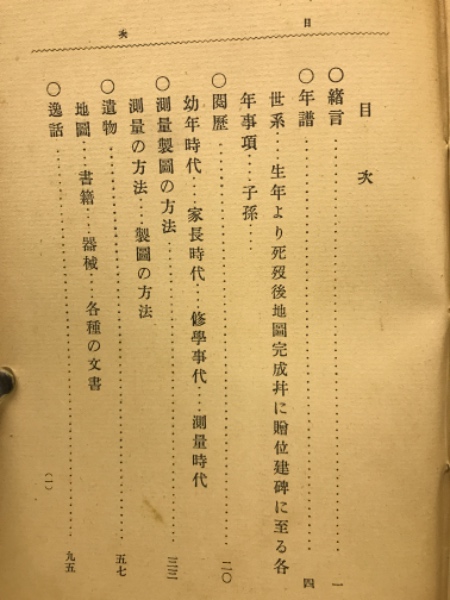 目次
目次
○緒言……………………一
○年譜……………………四
世系……生年より死歿後地圖完成幷に贈位建碑に至る各
年事項……子孫……
○閱歷……………………二〇
幼年時代……家長時代……修學事代……測量時代
○測量製圖の方法……………………三三
測量の方法……製圖の方法
○遺物……………………五七
地圖……書籍……器械……各種の文書
○逸話……………………九五
(一)